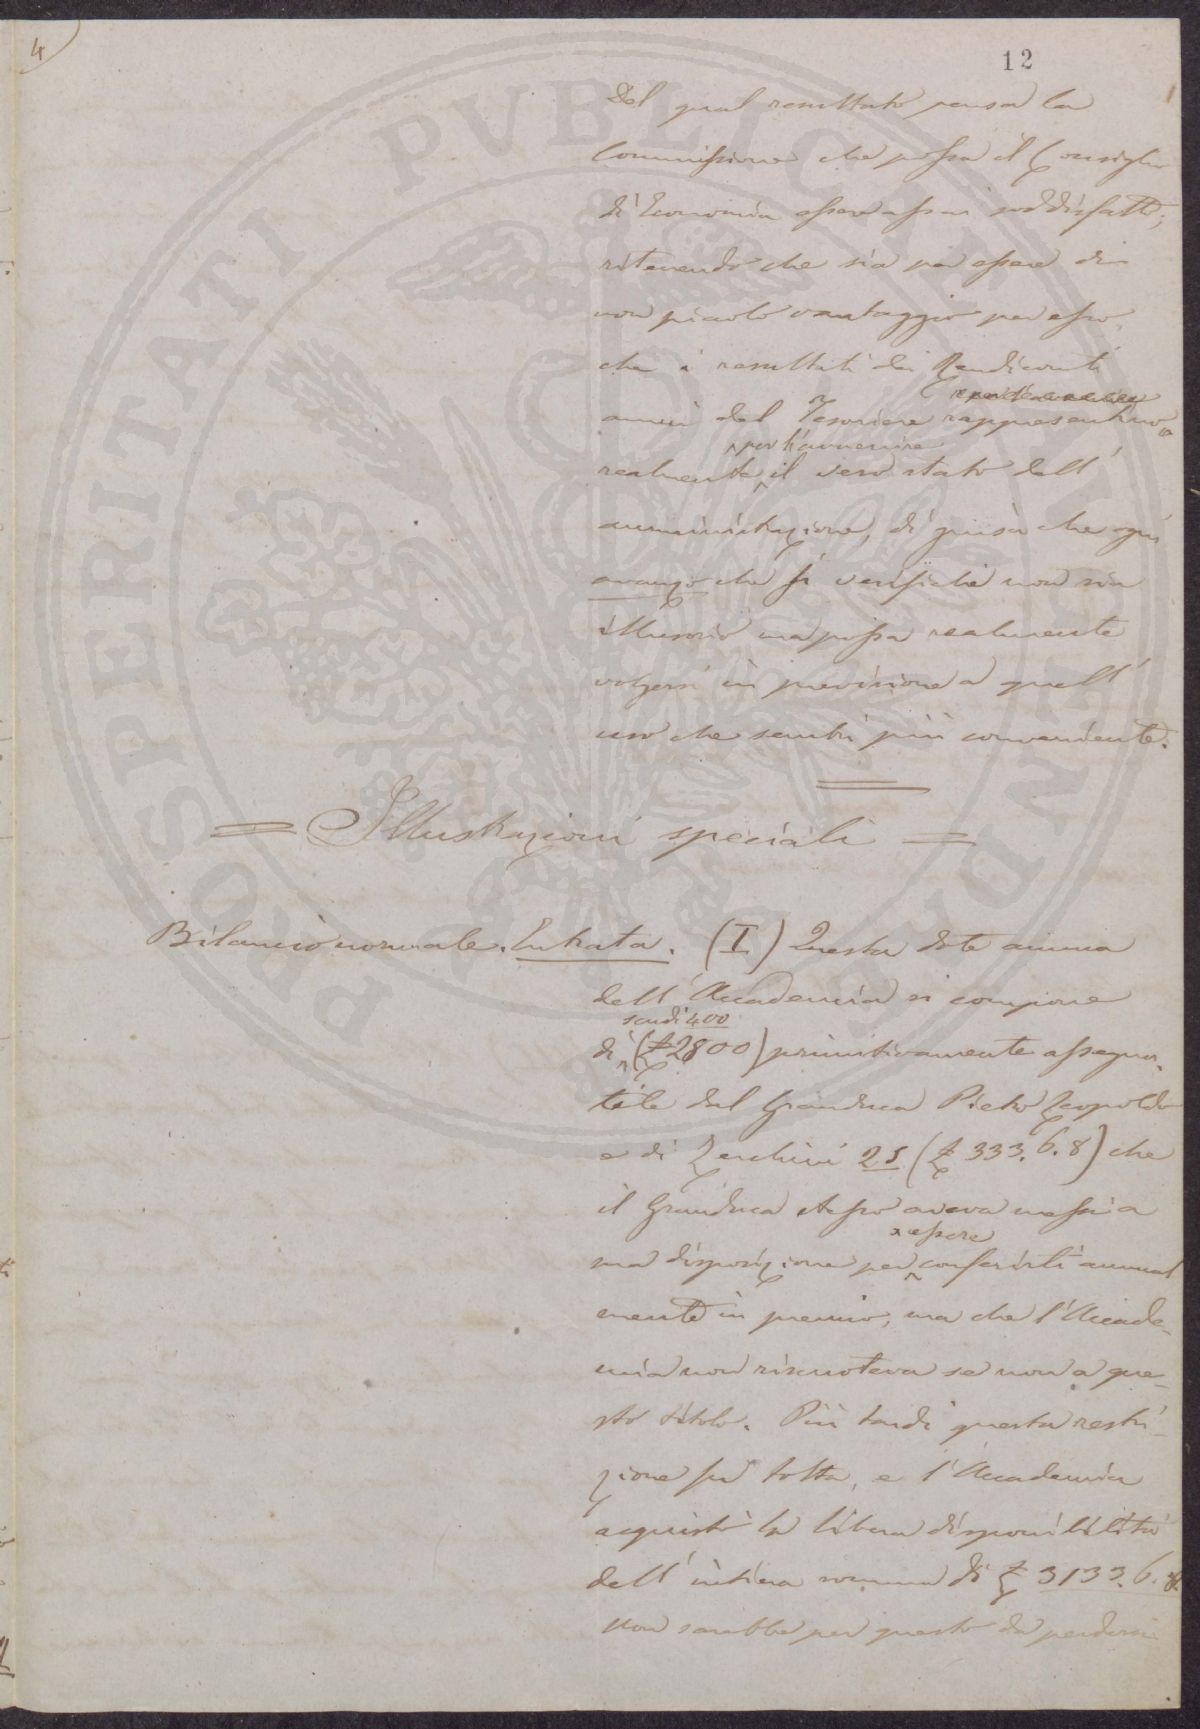 4)
12
Del qual resultato pensa la
Commissione che possa il Consiglio
di Economia essere assai soddisfatto;
ritenendo che sia per essere di
non piccolo vantaggio per esso,
che i resultati dei Rendiconti
annui del Tesoriere rappresentino
per l'avvenire
realmente il vero stato dell'
amministrazione, di guisa che ogni
avanzo che si verifichi non sia
illusorio ma possa realmente
volgersi in previsione a quell'
uso che sembri più conveniente.
= Illustrazioni speciali =
Bilancio normale. Entrata. (I) Questa dote annua
dell'Accademia si compone
scudi 400
di (£ 2800) primitivamente assegna-
tile dal Granduca Pietro Leopoldo
e di Zecchini 25 (£ 333. 6. 8) che
il Granduca stesso aveva messi a
essere
sua disposizione per conferirli annual
mente in premio, ma che l'Accade-
mia non riscuoteva se non a que-
sto titolo. Più tardi questa restri-
zione fu tolta, e l'Accademia
acquistò la libera disponibilità
dell'intiera somma di £ 3133. 6. 8.
Non sarebbe per questo da perdersi
PROSPERITATI PVBLICAE AVGENDAE